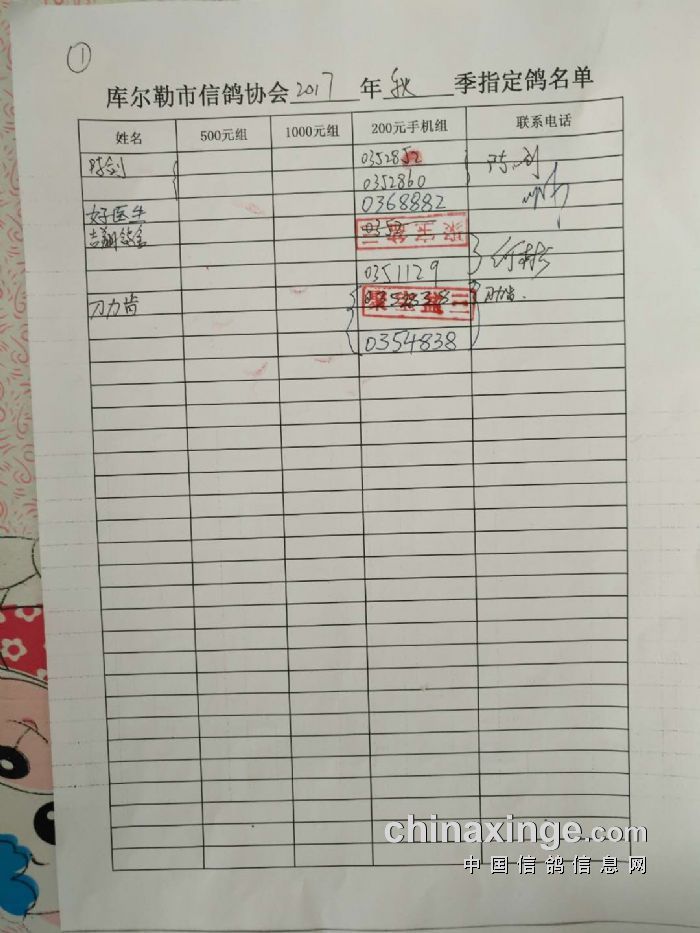 ①
库尔勒市信鸽协会2017年秋季指定鸽名单
姓名 500元组 1000元组 200元手机组 联系电话
陈剑 0352852 陈剑
0352860
好医生 0368882
0351129
刀力肯 刀力肯.
0354838
chinaxinge.com
中国信鸽信息网